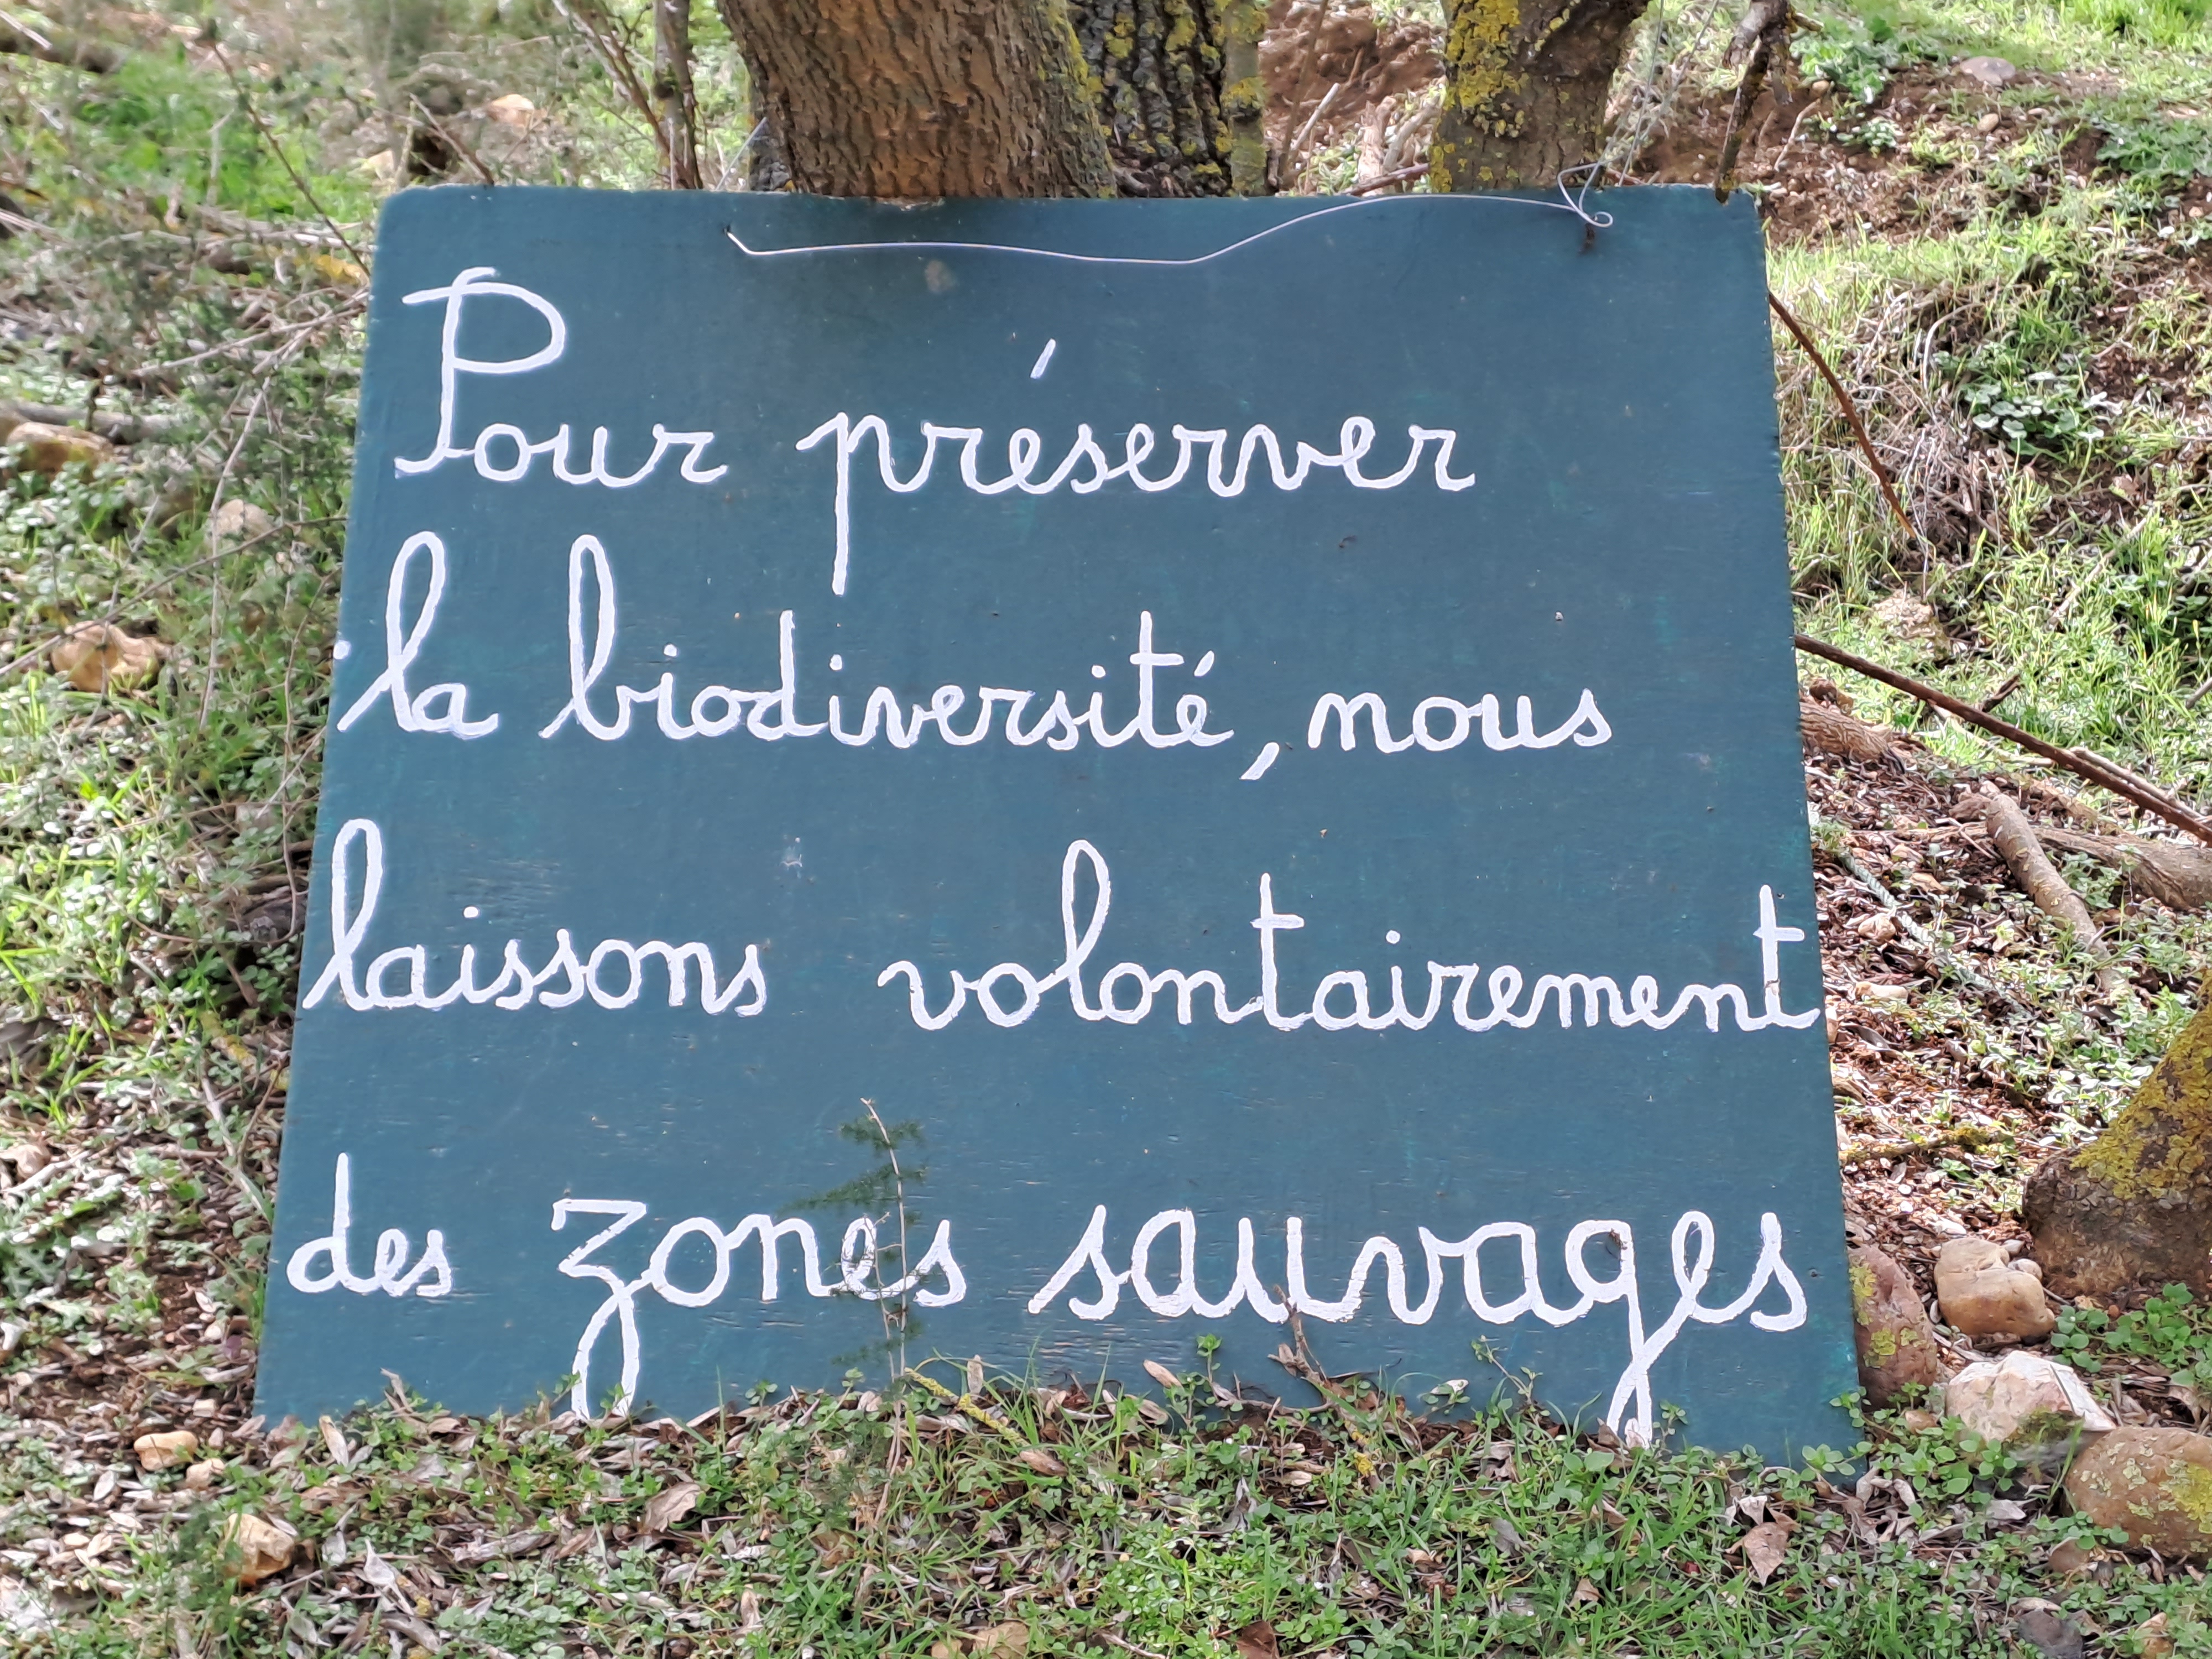 Pour préserver
la biodiversité, nous
laissons volontairement
des zones sauvages